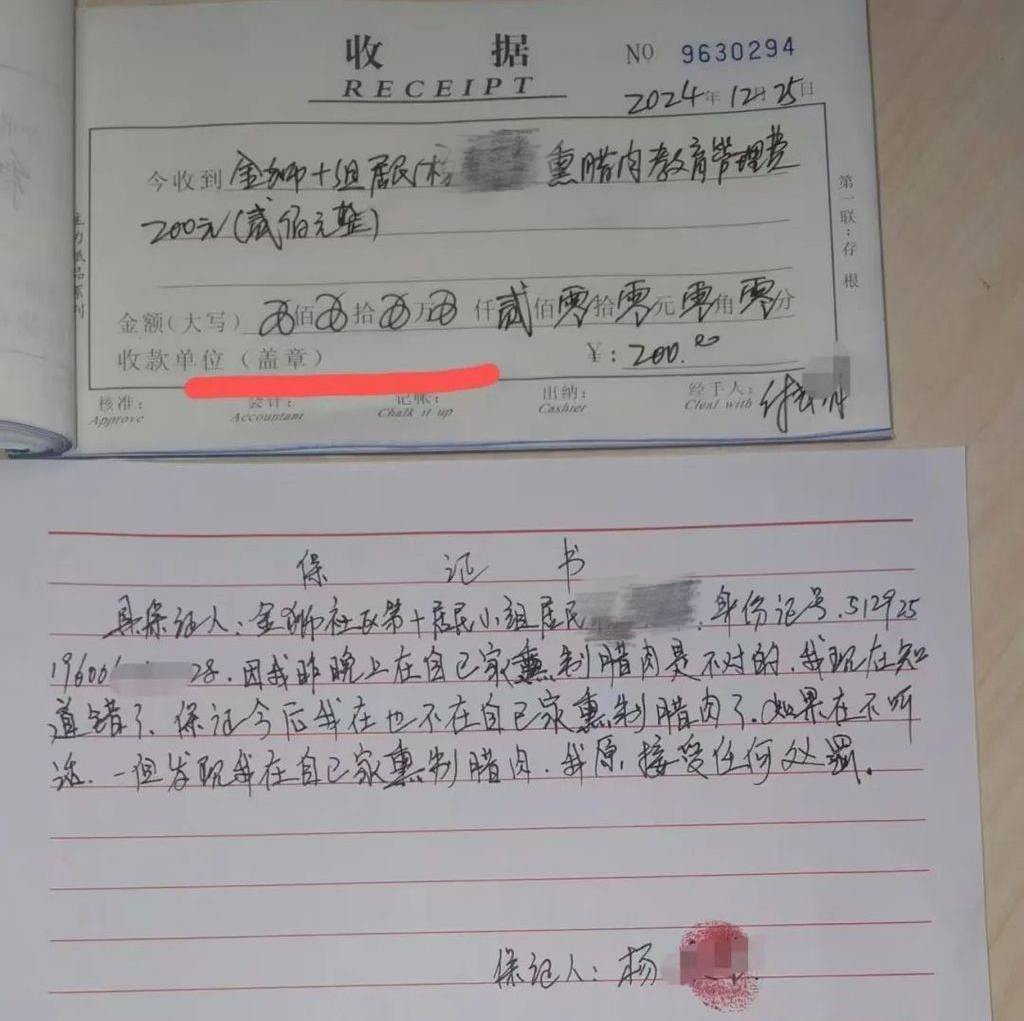 收 据
NO 9630294
RECEIPT
2024年12月25日
今收到 金狮十组居民杨 熏腊肉教育管理费
200元(贰佰元整)
金额(大写) 佰 拾 万 仟 贰 佰 零 拾 零 元 零 角 零 分
收款单位(盖章) ¥: 200.00
核准: 会计: 记账: 出纳: 经手人: 付
Approve Accountant Chalk it up Cashier Cleal with
第一联:存根
保 证 书
具保证人:金狮社区第十居民小组居民 ,身份证号.512925
19600 28.因我昨晚上在自己家熏制腊肉是不对的.我现在知
道错了、保证今后我在也不在自己家熏制腊肉了.如果在不听
话.一但发现我在自己家熏制腊肉.我原接受任何处罚。
保证人:杨